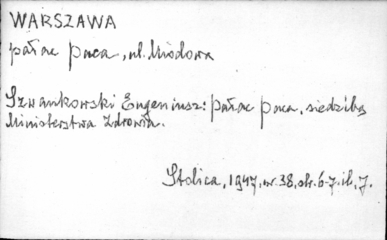 WARSZAWA
pałac paca, ul. Miodowa
Szwankowski Eugeniusz: pałac paca, siedzibą
Ministerstwa Zdrowia.
Stolica, 1947, nr. 38, str. 6-7. il. 7.